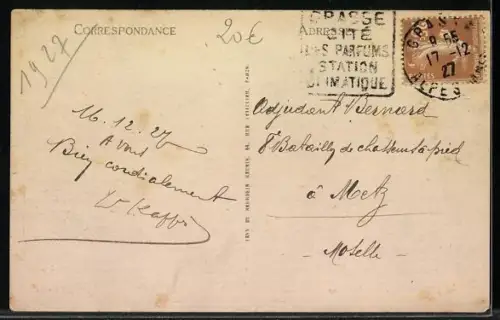 CORRESPONDANCE
ADRESSE
1927
20€
GRASSE
CITÉ
DES PARFUMS
STATION
CLIMATIQUE
9 55
17-12
27
ALPES
16.12.27
A vous
Bien cordialement
Adjudant Bernard
8e Bataillon de chasseurs à pied
à Metz
Moselle